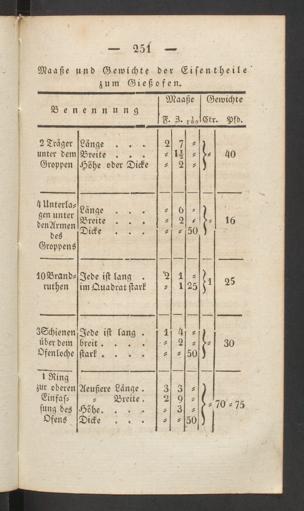 — 251 —
Maaße und Gewichte der Eisentheile
zum Gießofen.
Benennung Maaße Gewichte
F. Z. 1/100 Ctr. Pfd.
2 Träger Länge . . . 2 7 „
unter dem Breite . . . „ 1½ „ „ 40
Groppen Höhe oder Dicke „ 2 „
4 Unterla-
gen unter Länge . . . . „ 6 „
den Armen Breite . . . . „ 2 „ „ 16
des Dicke . . . . „ „ 50
Groppens
10 Brand- Jede ist lang . 2 1 „ 1 25
ruthen im Quadrat stark „ 1 25
3 Schienen Jede ist lang . 1 4 „
über dem breit . . . . „ 2 „ „ 30
Ofenloche stark . . . . „ „ 50
1 Ring
zur oberen Aeußere Länge . 3 3 „
Einfas- „ Breite . 2 9 „ „ 70 „ 75
sung des Höhe . . . . „ 3 „
Ofens Dicke . . . . „ „ 50